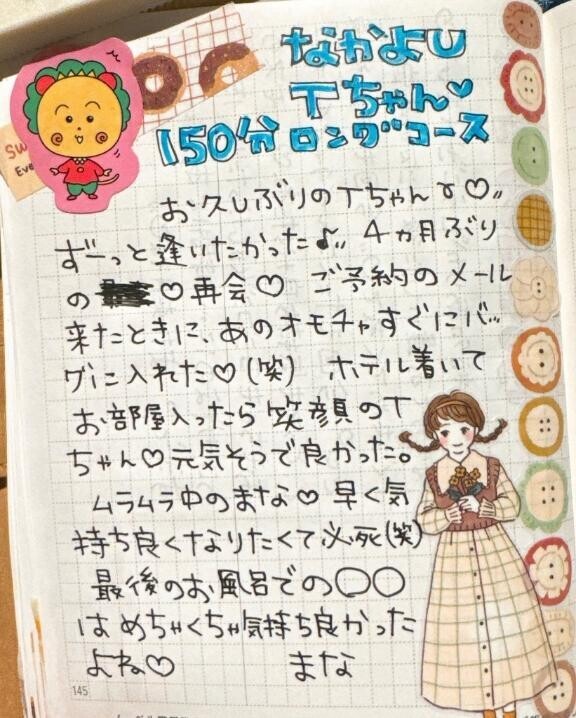 なかよし
Tちゃん♡
150分ロングコース
お久しぶりのTちゃん♡〃
ずーっと逢いたかった♪〃 4ヵ月ぶり
の ♡再会♡ ご予約のメール
来たときに、あのオモチャすぐにバッ
グに入れた♡(笑) ホテル着いて
お部屋入ったら笑顔のT
ちゃん♡元気そうで良かった。
ムラムラ中のまな♡ 早く気
持ち良くなりたくて必死(笑)
最後のお風呂での〇〇
はめちゃくちゃ気持ち良かった
よね♡ まな
145